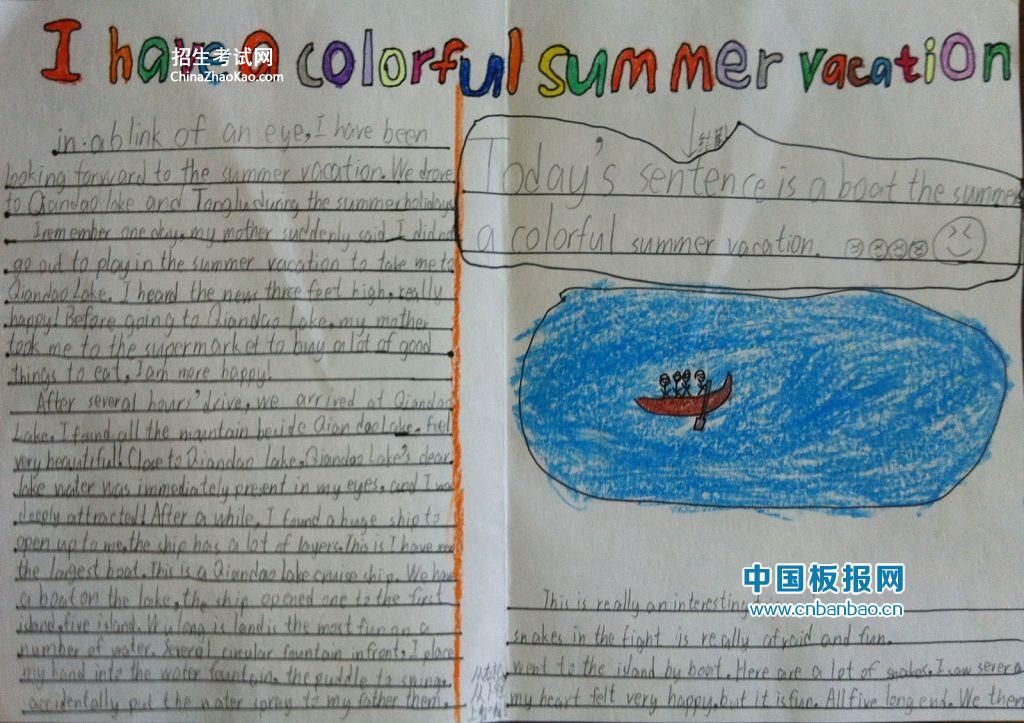 I have a colorful summer vacation
招生考试网
ChinaZhaoKao.com
in a blink of an eye, I have been
looking forward to the summer vacation. We drove
to Qiandao lake and Tonglu during the summer holidays
I remember one day, my mother suddenly said I didn't
go out to play in the summer vacation to take me to
Qiandao Lake. I heard the news three feet high, really
happy! Before going to Qiandao Lake, my mother
took me to the supermarket to buy a lot of good
things to eat, I am more happy!
After several hours' drive, we arrived at Qiandao
Lake. I found all the mountain beside Qiandao Lake. feel
very beautiful! Close to Qiandao lake, Qiandao Lake's clear
lake water was immediately present in my eyes, and I was
deeply attracted! After a while, I found a huge ship to
open up to me, the ship has a lot of layers. This is I have seen
the largest boat. This is a Qiandao lake cruise ship. We have
a boat on the lake, the ship opened one to the first
island, five island. long island is the most fun an a
number of water. Several circular fountain in front, I place
my hand into the water fountain, the puddle to
accidentally put the water spray to my father them.
Today's sentence is a boat the summer
a colorful summer vacation.
中国板报网
www.cnbanbao.cn
This is really an interesting
snakes in the fight is really afraid and fun.
went to the island by boat. Here are a lot of snakes. I saw severa
my heart felt very happy, but it is fun. All five long end. We then